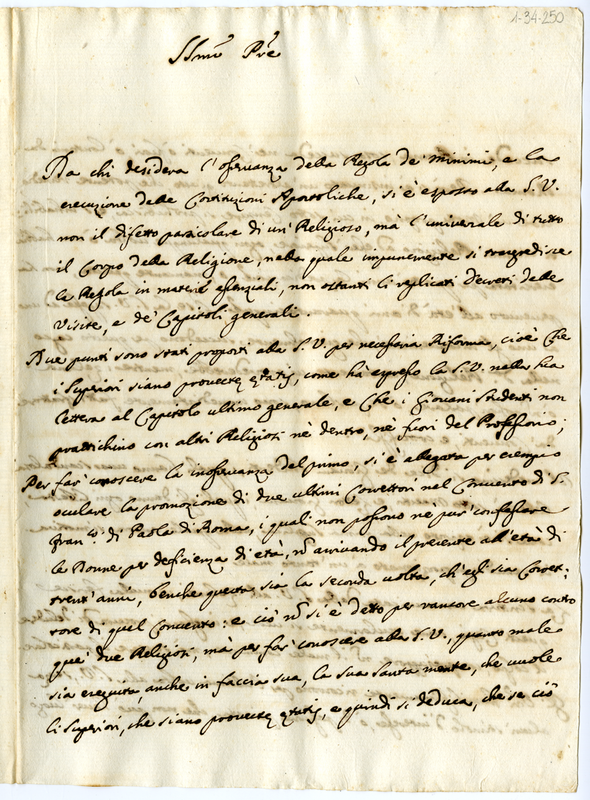 1-34-250
SSmo Pre
Da chi desidera l'osservanza della Regola de' Minimi, e la
esecuzione delle Costituzioni Apostoliche, si è esposto alla S. V.
non il difetto particolare di un' Religioso, mà l'universale di tutto
il Corpo della Religione, nella quale impunemente si trasgredisce
la Regola in materie essenziali, non ostanti li replicati Decreti delle
Visite, e de' Capitoli generali.
Due punti sono stati proposti alla S. V. per necessaria Riforma, cioè che
i Superiori siano provectę ętatis, come hà espresso la S. V. nella sua
lettera al Capitolo ultimo generale, e che i Giovani Studenti non
prattichino con altri Religiosi nè dentro, nè fuori del Professorio;
Per far' conoscere la inosservanza del primo, si è allegata per esempio
oculare la promozione di due ultimi Correttori nel Convento di S.
Franco. di Paola di Roma, i quali non possono ne pur' confessare
le Donne per deficienza di età, nō arrivando il presente all'età di
trent'anni, benche questa sia la seconda volta, ch'egli sia Corret-
tore di quel Convento: e ciò nō si è detto per rancore alcuno contro
que' due Religiosi, mà per far' conoscere alla S. V., quanto male
sia eseguita, anche in faccia sua, la sua santa mente, che vuole
li Superiori, che siano provectę ętatis, e quindi si deduca, che se ciò